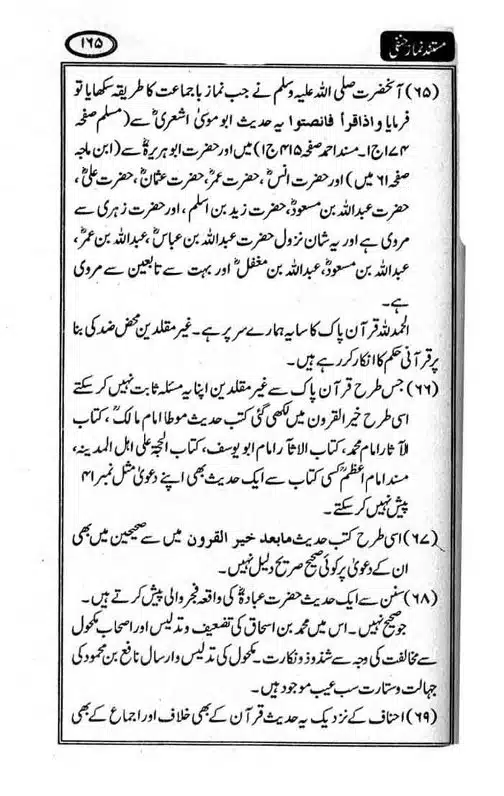 مستند نماز حنفی
۱۶۵
(۶۵) آنحضرت صلی اللہ علیہ وسلم نے جب نماز باجماعت کا طریقہ سکھایا تو
فرمایا واذاقرأ فانصتوا یہ حدیث ابو موسیٰ اشعریؓ سے (مسلم صفحہ
۱۷۴ ج۱۔ مسند احمد صفحہ ۴۱۵ ج۱) میں اور حضرت ابو ہریرہؓ سے (ابن ماجہ
صفحہ ۶۱ میں) اور حضرت انسؓ، حضرت عمرؓ، حضرت عثمانؓ، حضرت علیؓ،
حضرت عبداللہ بن مسعودؓ، حضرت زید بن اسلم، اور حضرت زہری سے
مروی ہے اور یہ شان نزول حضرت عبداللہ بن عباسؓ، عبداللہ بن عمرؓ،
عبداللہ بن مسعودؓ، عبداللہ بن مغفلؓ اور بہت سے تابعین سے مروی
ہے۔
الحمدللہ قرآن پاک کا سایہ ہمارے سر پر ہے۔ غیر مقلدین محض ضد کی بنا
پر قرآنی حکم کا انکار کر رہے ہیں۔
(۶۶) جس طرح قرآن پاک سے غیر مقلدین اپنا یہ مسئلہ ثابت نہیں کر سکتے
اسی طرح خیر القرون میں لکھی گئی کتب حدیث موطا امام مالکؒ، کتاب
الآثار امام محمد، کتاب الآثار امام ابو یوسف، کتاب الحجۃ علی اہل المدینہ،
مسند امام اعظمؒ کسی کتاب سے ایک حدیث بھی اپنے دعویٰ مثل نمبر ۴۱
پیش نہیں کر سکتے۔
(۶۷) اسی طرح کتب حدیث مابعد خیر القرون میں سے صحیحین میں بھی
ان کے دعویٰ پر کوئی صحیح صریح دلیل نہیں۔
(۶۸) سنن سے ایک حدیث حضرت عبادہؓ کی واقعہ فجر والی پیش کرتے ہیں۔
جو صحیح نہیں۔ اس میں محمد بن اسحاق کی تضعیف و تدلیس اور اصحاب مکحول
سے مخالفت کی وجہ سے شذوذ و نکارت۔ مکحول کی تدلیس و ارسال نافع بن محمود کی
جہالت و ستارت سب عیب موجود ہیں۔
(۶۹) احناف کے نزدیک یہ حدیث قرآن کے بھی خلاف اور اجماع کے بھی